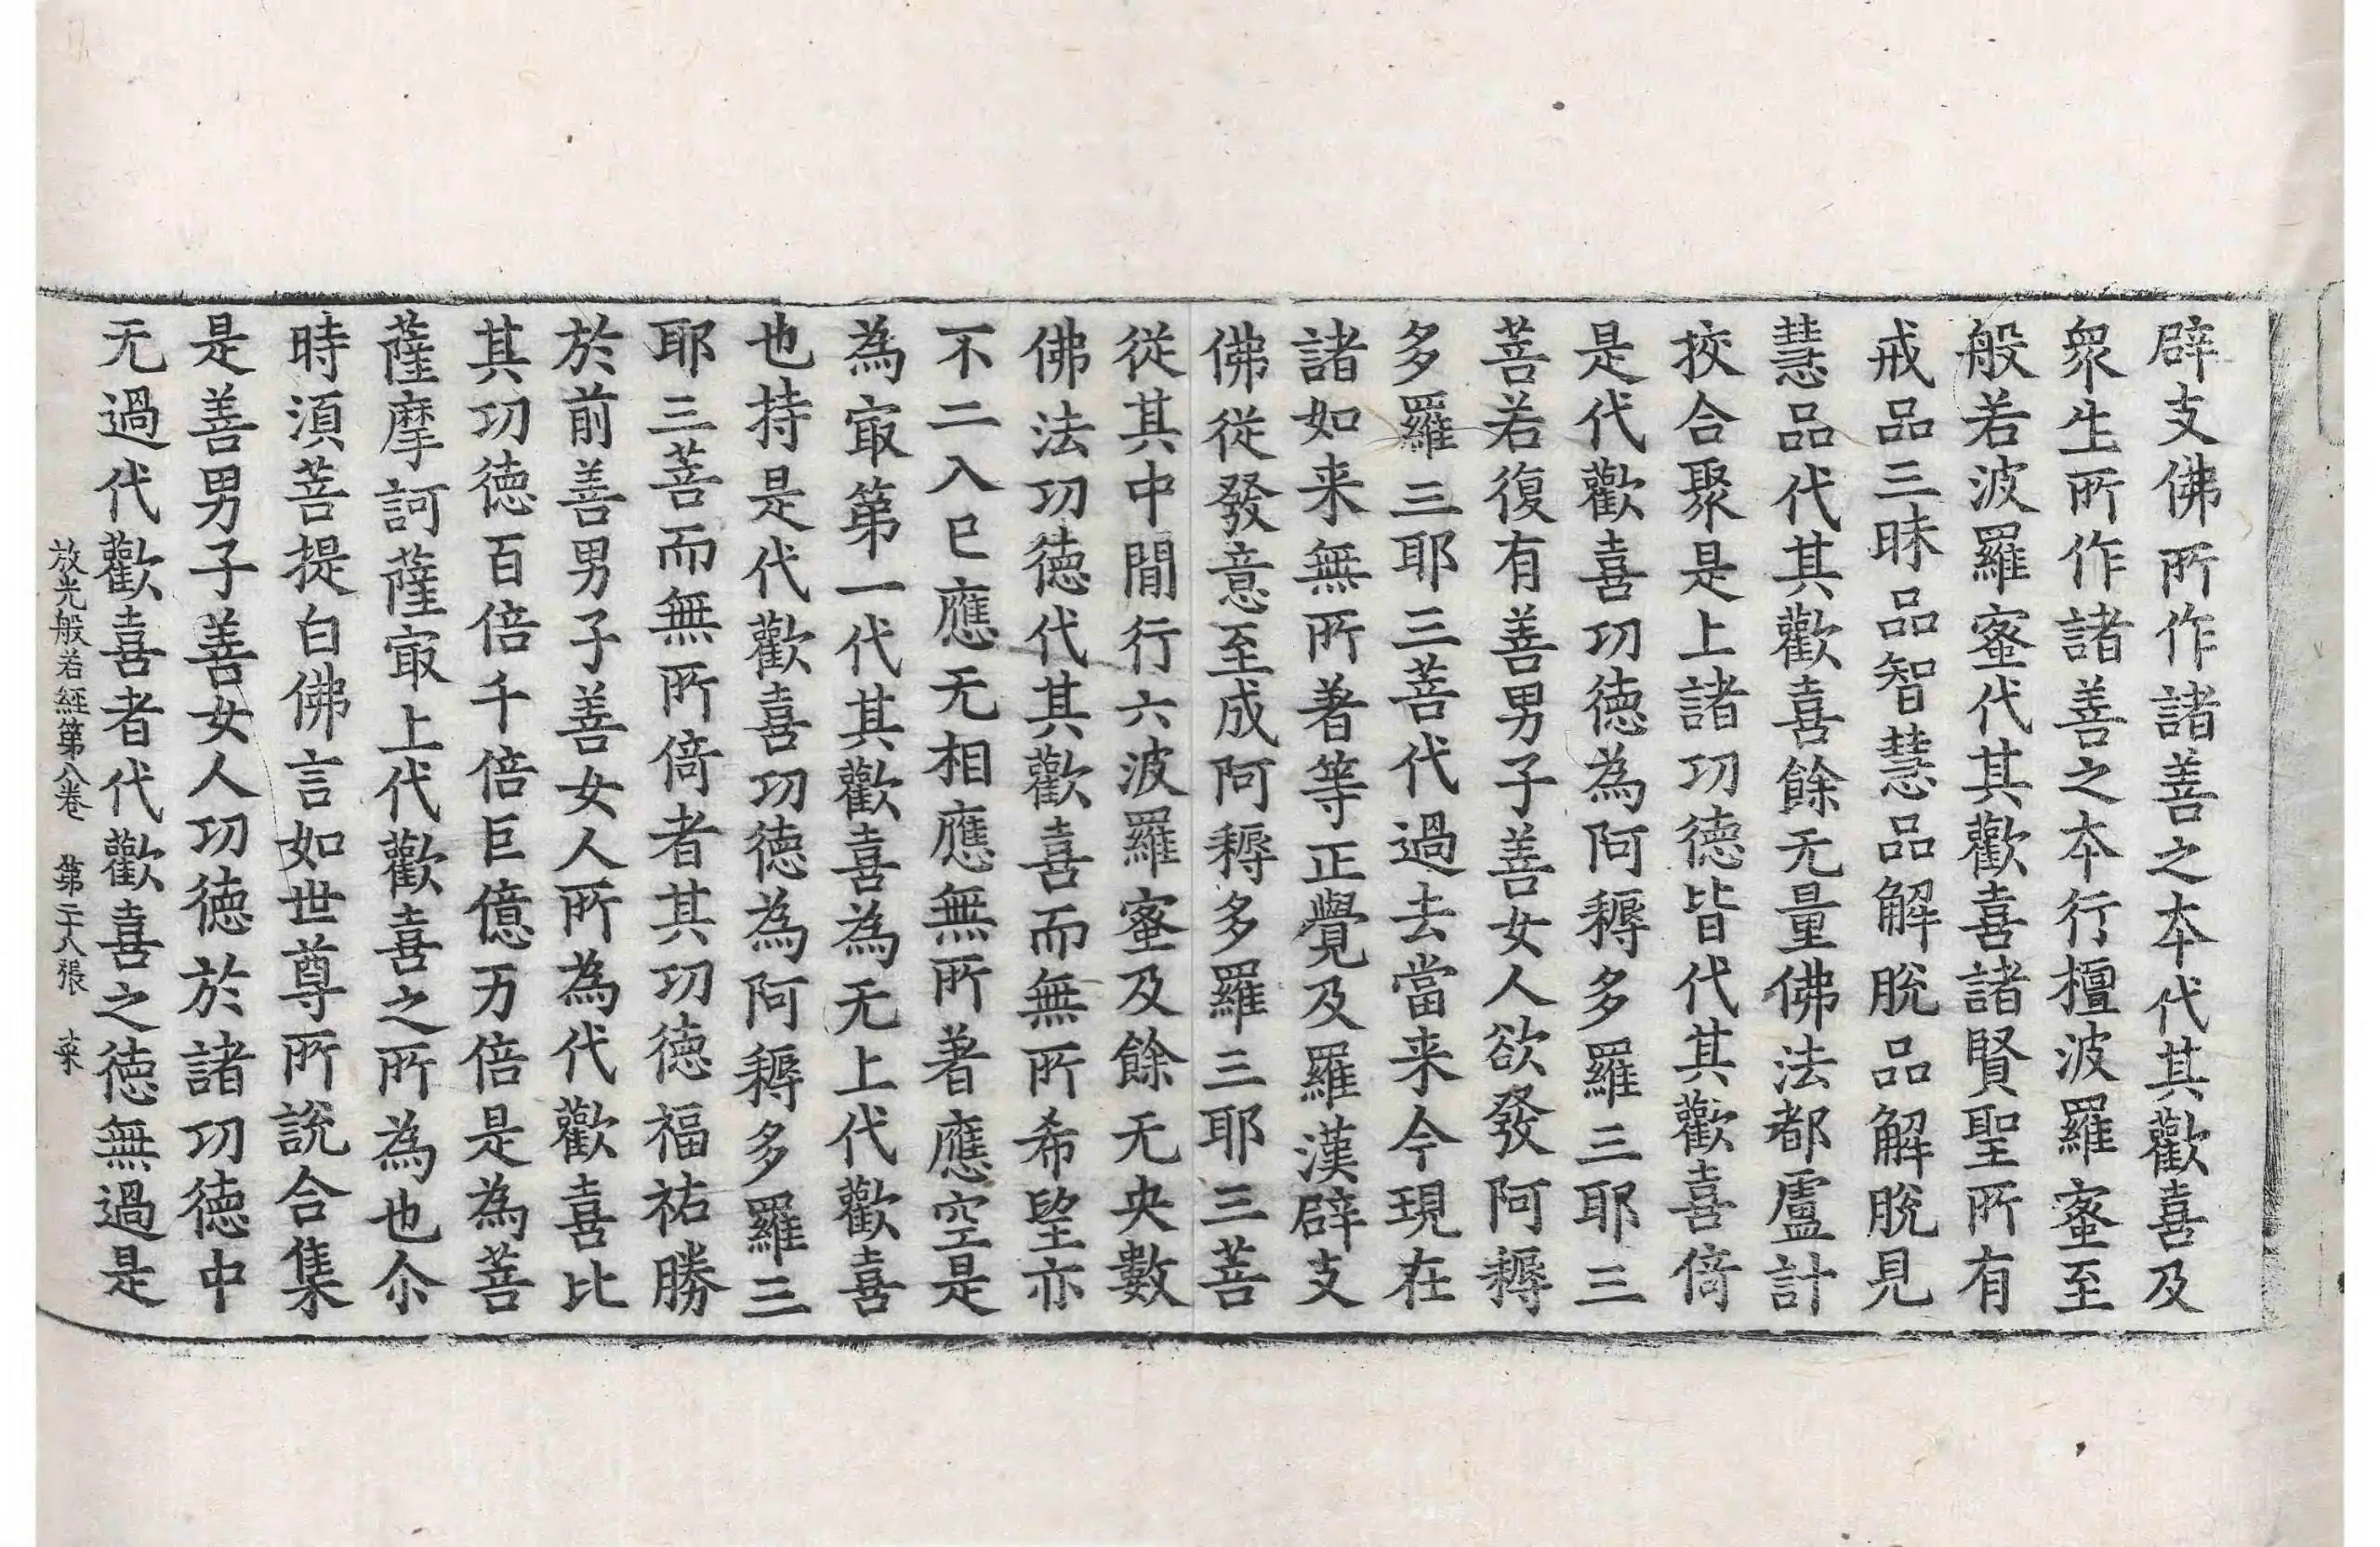 辟支佛所作諸善之本代其歡喜及
衆生所作諸善之本行檀波羅蜜至
般若波羅蜜代其歡喜諸賢聖所有
戒品三昧品智慧品解脫品解脫見
慧品代其歡喜餘无量佛法都盧計
挍合聚是上諸功德皆代其歡喜倚
是代歡喜功德為阿耨多羅三耶三
菩若復有善男子善女人欲發阿耨
多羅三耶三菩代過去當来今現在
諸如来無所著等正覺及羅漢辟支
佛從發意至成阿耨多羅三耶三菩
從其中閒行六波羅蜜及餘无央數
佛法功德代其歡喜而無所希望亦
不二入已應无相應無所著應空是
為㝡第一代其歡喜為无上代歡喜
也持是代歡喜功德為阿耨多羅三
耶三菩而無所倚者其功德福祐勝
於前善男子善女人所為代歡喜比
其功德百倍千倍巨億万倍是為菩
薩摩訶薩㝡上代歡喜之所為也尒
時湏菩提白佛言如世尊所說合集
是善男子善女人功德於諸功德中
无過代歡喜者代歡喜之德無過是
放光般若經第八卷 第二十八張 菜